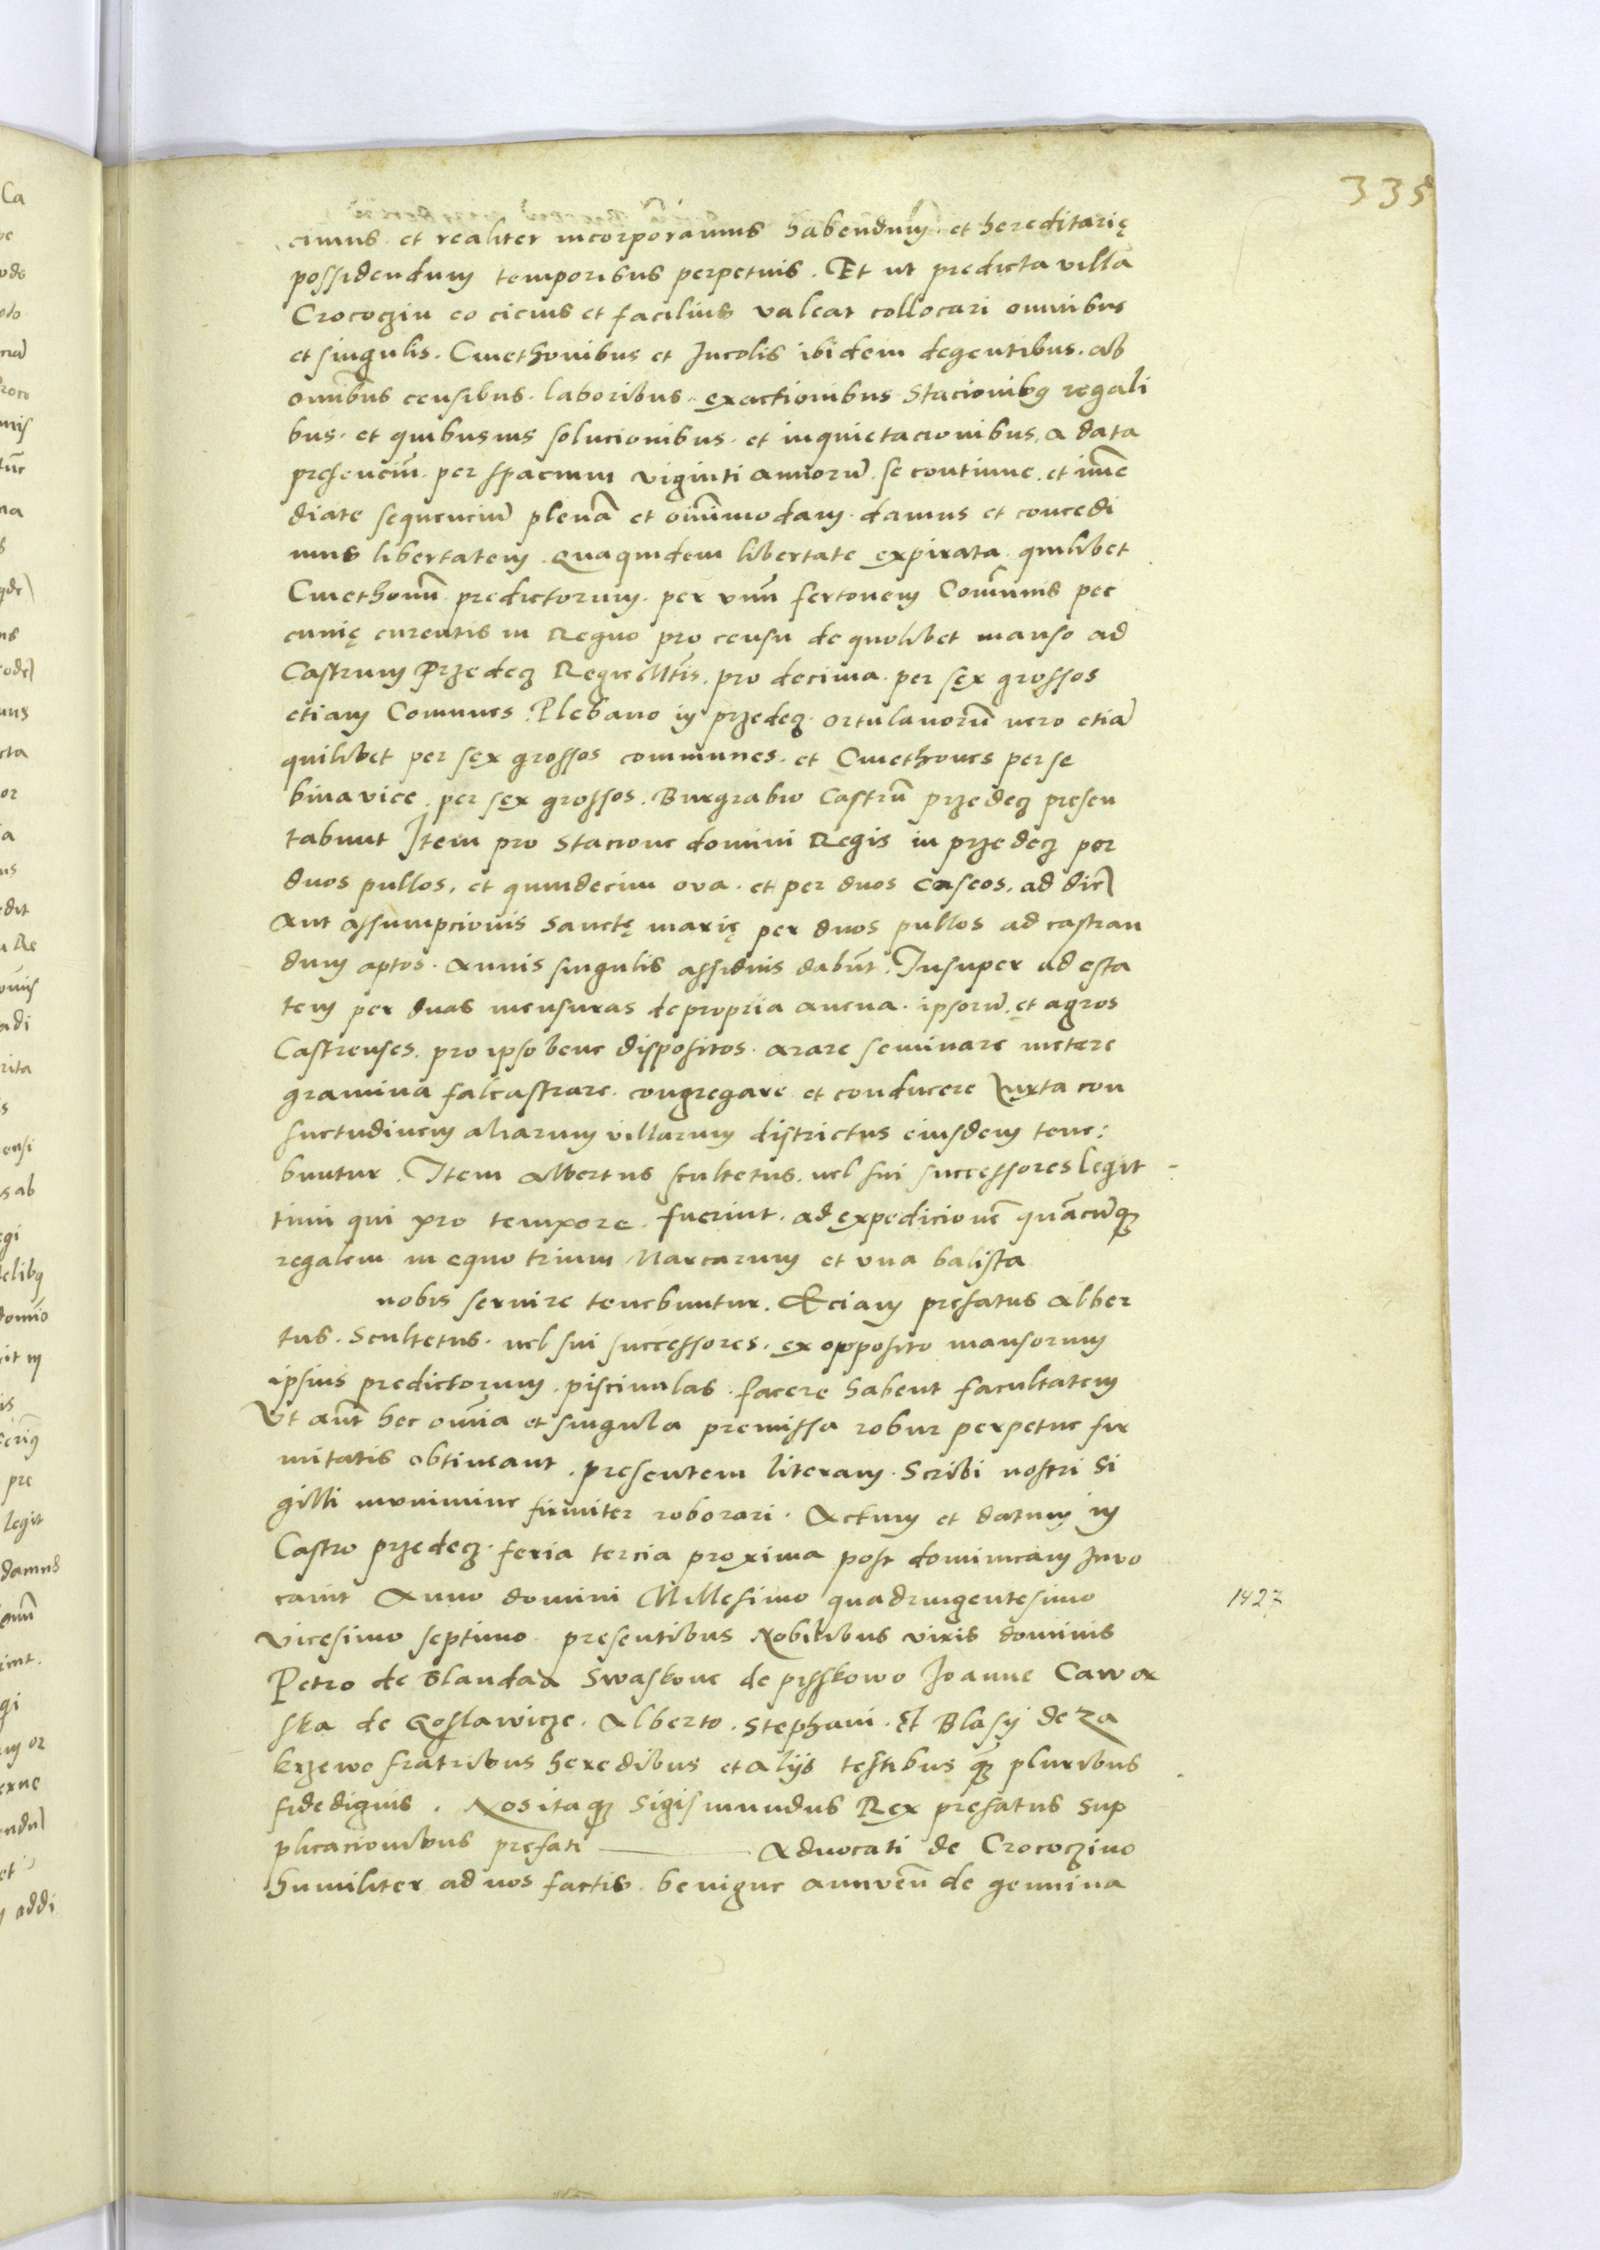 335
cimus et realiter incorporamus habendum et hereditarię
possidendum temporibus perpetuis. Et ut predicta villa
Crococzin eo cicius et facilius valeat collocari omnibus
et singulis. Cmethonibus et Incolis ibidem degentibus. ab
omībus censibus. laboribus. exactionibus Stacionibꝫ regali
bus. et quibusuis solucionibus. et inquietacionibus, a data
presenciū. per spacium viginti annorū. se continue. et imē
diate sequenciū plenā et oīmmodam. damus et concedi
mus libertatem. Quaquidem libertate expirata quilibet
Cmethonū predictorum. per vnū fertonem Comunis pec
cunię curentis in Regno pro censu de quolibet manso ad
Castrum Przedecz Regie Mtis. pro decima. per sex grossos
etiam Comunes. Plebano in przedecz. ortulanorū vero etiā
quilibet per sex grossos communes. et Cmethones per se
bina vice. per sex grossos. Burgrabio Castrū przedecz presen
tabunt Item pro Stacione domini Regis in przedecz per
duos pullos, et quindecim ova. et per duos caseos. ad dic
aut assumpcionis Sanctę marię per duos pullos ad castran
dum aptos. annis singulis assiduis dabūt. Insuper ad esta
tem per duas mensuras de propria avena. ipsorū. et agros
Castrenses. pro ipso bene dispositos. arare seminare metere
gramina falcastrare. congregare et conducere Juxta con
suetudinem aliarum villarum districtus eiusdem tene:
buntur. Item Albertus scultetus. uel sui successores legit
timi qui pro tempore. fuerint. ad expedicionē quācūqꝫ
regalem in equo trium Marcarum et vna balista
nobis seruire tenebuntur. Eciam prefatus Alber
tus. Scultetus. uel sui successores. ex opposito mansorum
ipsius predictorum. piscinulas. facere habent facultatem
Vt aūt hec omīa et singula premissa robur perpetue fir
mitatis obtineant. presentem literam. Scribi nostri Si
gilli munimine firmiter roborari. Actum et datum in
Castro przedecz. feria tercia proxima post dominicam Inuo
cauit Anno domini Millesimo quadringentesimo
1427
vicesimo septimo. presentibus Nobilibus viris dominis
Petro de Blanda Swaskone de pysskowo Joanne Cawa
ska de Goslawicze. Alberto. Stephani. Et Blasij de za
krzewo fratribus heredibus et alijs testibus qꝫ pluribus
fidedignis. Nos itaqꝫ Sigismundus Rex prefatus Sup
plicacionibus prefati Aduocati de Crococzino
humiliter ad nos factis. benigne annuen de gemina